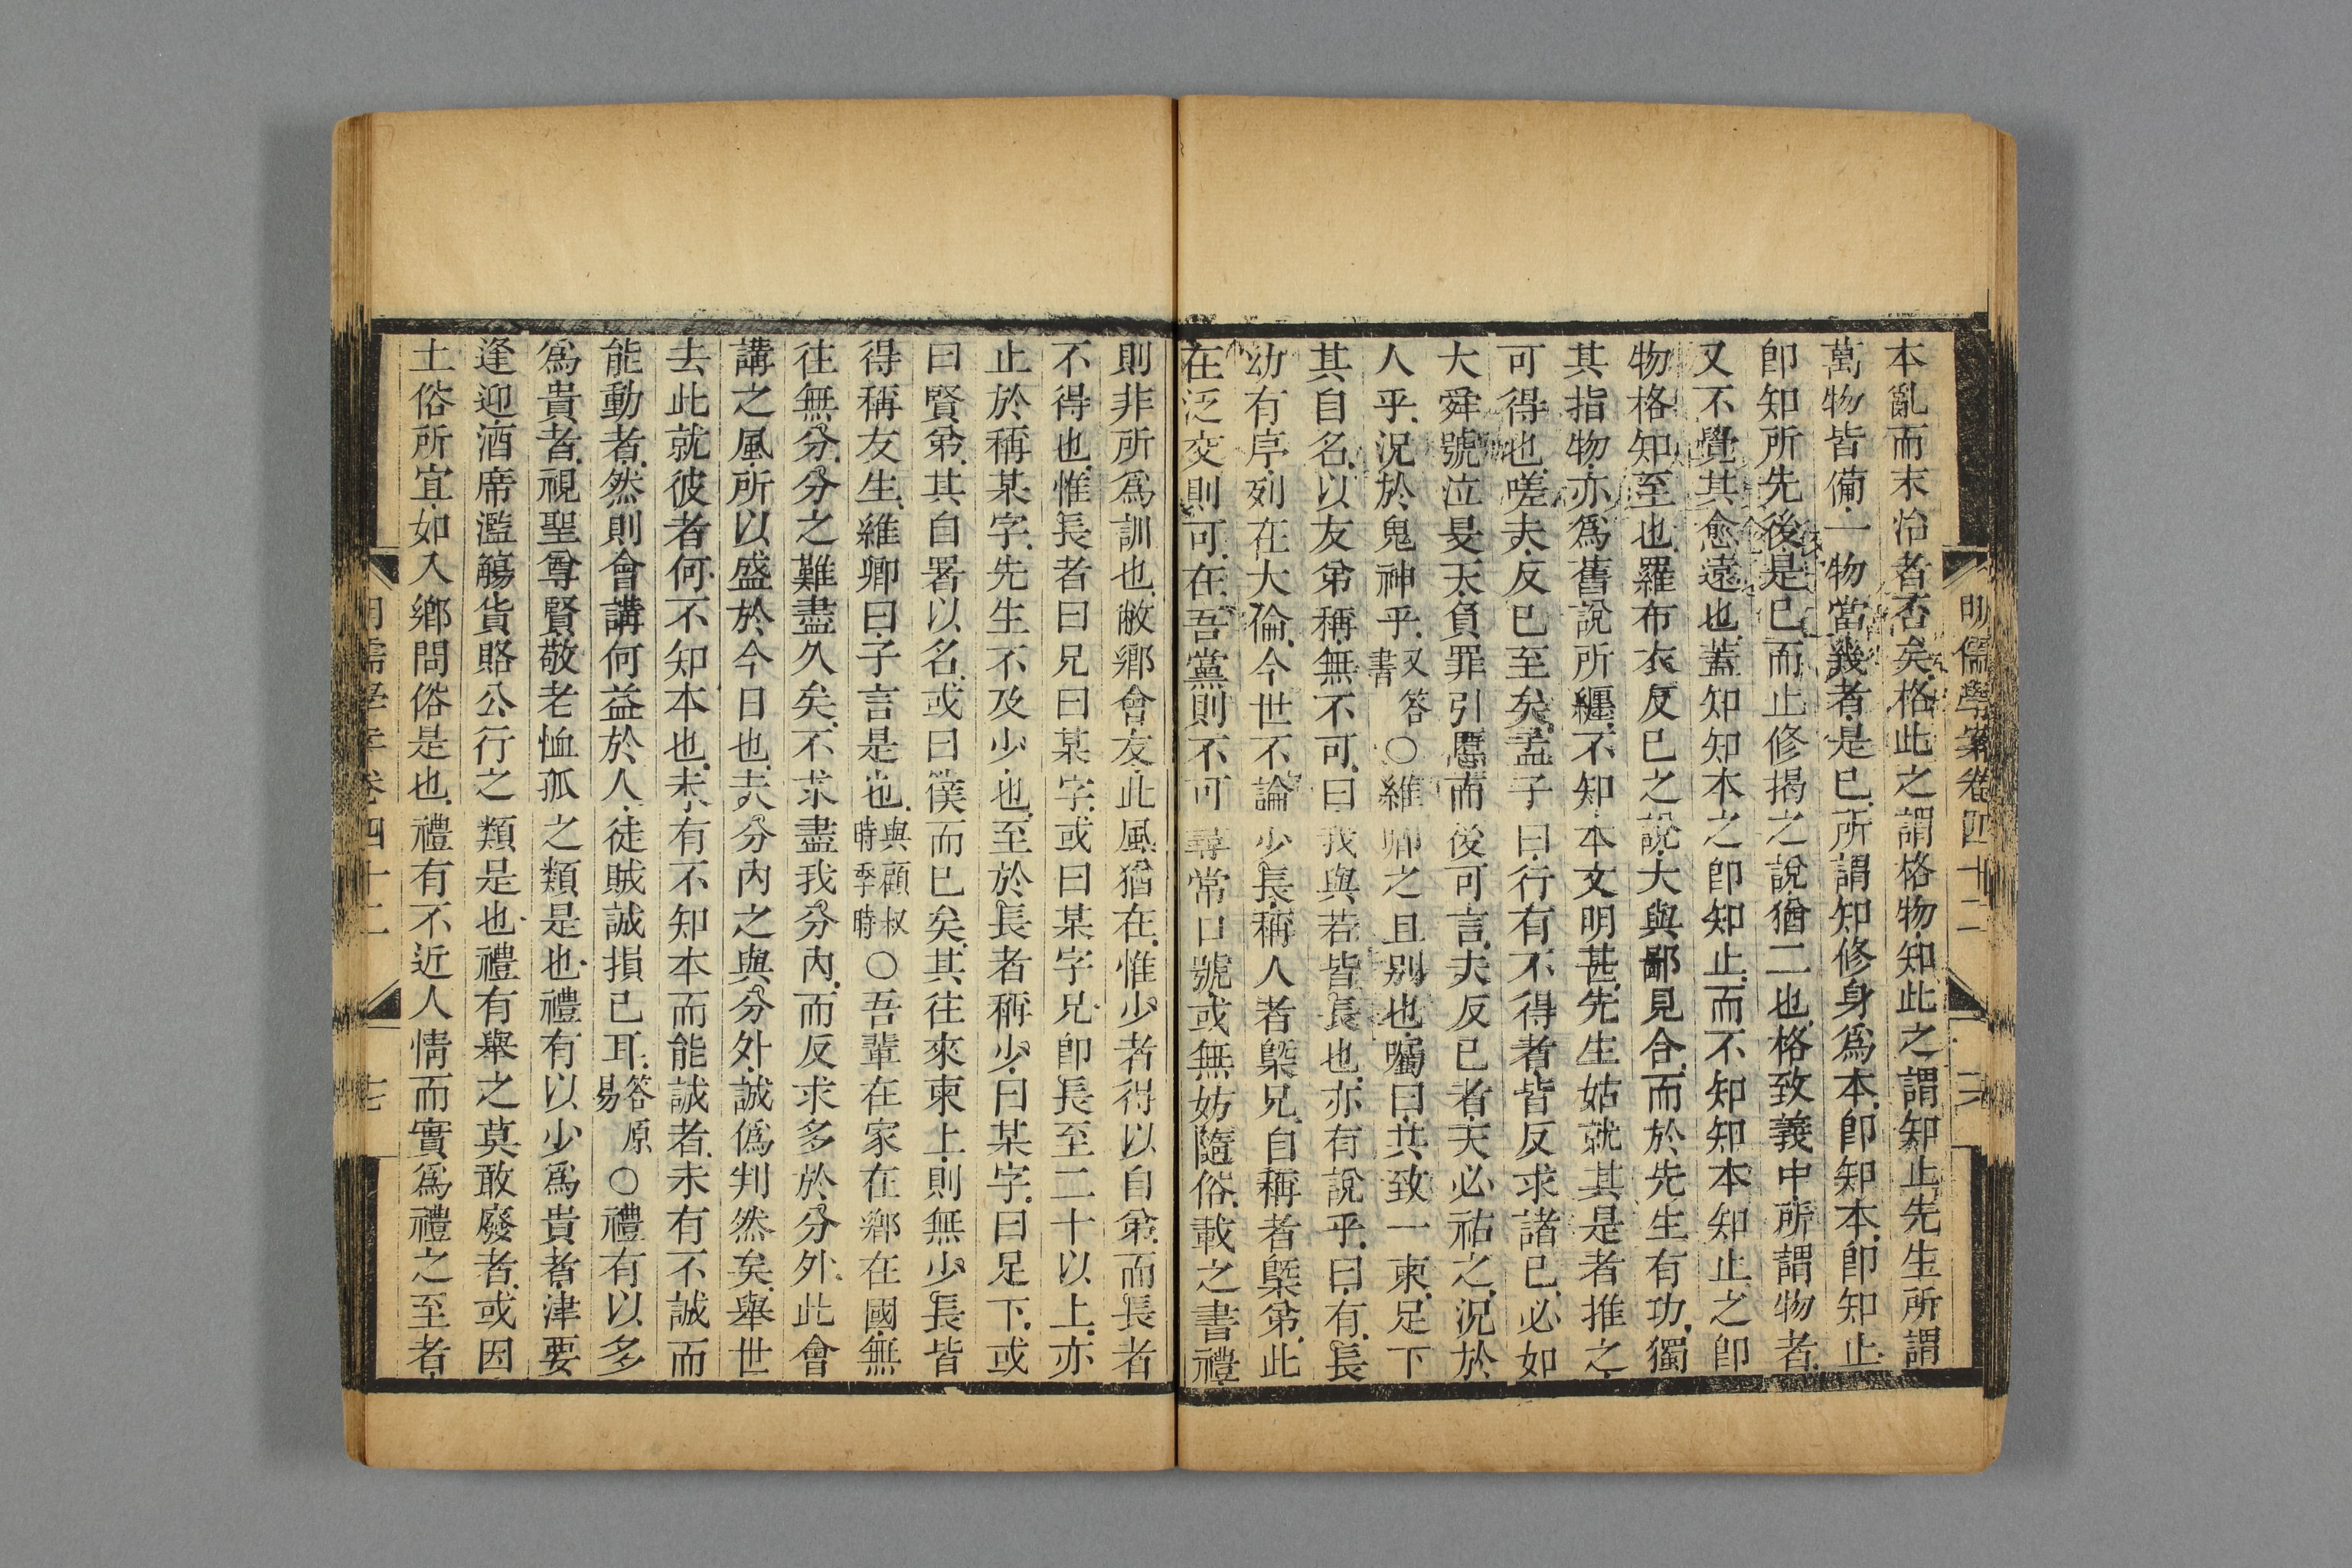 明儒學案卷四十二
六
本亂而末治者否矣格此之謂格物知此之謂知止先生所謂
萬物皆備一物當幾者是已所謂知修身爲本卽知本卽知止
卽知所先後是已而止修揭之說猶二也格致義中所謂物者
又不覺其愈遠也蓋知知本之卽知止而不知知本知止之卽
物格知至也羅布衣反已之說大與鄙見合而於先生有功獨
其指物亦爲舊說所纏不知本文明甚先生姑就其是者推之
可得也嗟夫反已至矣孟子曰行有不得者皆反求諸已必如
大舜號泣旻天負罪引慝而後可言夫反已者天必祐之況於
人乎況於鬼神乎又答書○維卿之且别也囑曰共致一柬足下
其自名以友弟稱無不可曰我與若皆長也亦有說乎曰有長
幼有序列在大倫今世不論少長稱人者槩兄自稱者槩弟此
在泛交則可在吾黨則不可尋常口號或無妨隨俗載之書禮
則非所爲訓也敝鄉會友此風猶在惟少者得以自弟而長者
不得也惟長者曰兄曰某字或曰某字兄卽長至二十以上亦
止於稱某字先生不及少也至於長者稱少曰某字曰足下或
曰賢弟其自署以名或曰僕而已矣其往來柬上則無少長皆
得稱友生維卿曰子言是也與顧叔時季時○吾輩在家在鄉在國無
往無分分之難盡久矣不求盡我分內而反求多於分外此會
講之風所以盛於今日也夫分內之與分外誠僞判然矣舉世
去此就彼者何不知本也未有不知本而能誠者未有不誠而
能動者然則會講何益於人徒賊誠損已耳答原易○禮有以多
爲貴者視聖尊賢敬老恤孤之類是也禮有以少爲貴者津要
逢迎酒席濫觴貨賂公行之類是也禮有舉之莫敢廢者或因
土俗所宜如入鄉問俗是也禮有不近人情而實爲禮之至者
明儒學案卷四十二
七